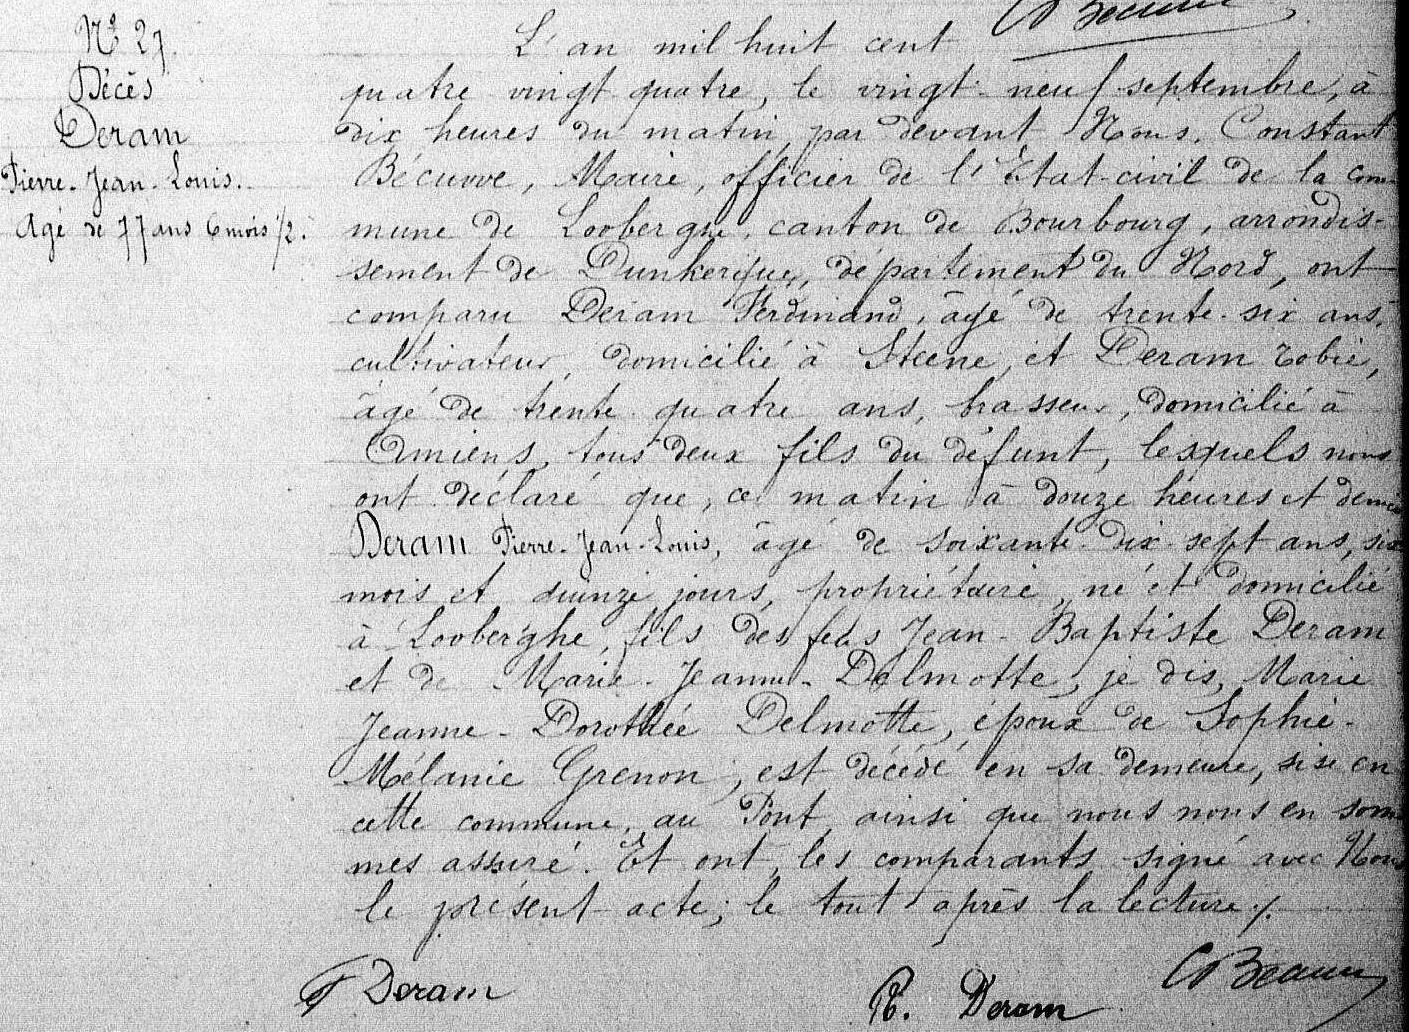 Nº 27.
Décès
Deram
Pierre-Jean-Louis.
Agé de 77 ans 6 mois 1/2.
L'an mil huit cent
quatre vingt quatre, le vingt-neuf septembre, à
dix heures du matin, par devant Nous, Constant
Bécuwe, Maire, officier de l'Etat-civil de la com-
mune de Looberghe, canton de Bourbourg, arrondis-
sement de Dunkerque, département du Nord, ont
comparu Deram Ferdinand, âgé de trente-six ans,
cultivateur, domicilié à Steene, et Deram Tobie,
âgé de trente quatre ans, brasseur, domicilié à
Amiens, tous deux fils du défunt, lesquels nous
ont déclaré que, ce matin à douze heures et demie
Deram Pierre-Jean-Louis, âgé de soixante-dix-sept ans, six
mois et quinze jours, propriétaire, né et domicilié
à Looberghe, fils des feus Jean-Baptiste Deram
et de Marie-Jeanne-Delmotte, je dis, Marie
Jeanne-Dorothée Delmotte, époux de Sophie-
Mélanie Grenon, est décédé en sa demeure, sise en
cette commune, au Pont, ainsi que nous nous en som-
mes assuré. Et ont, les comparants signé avec Nous
le présent acte; le tout après la lecture./.
F Deram
T. Deram
C Bécuwe